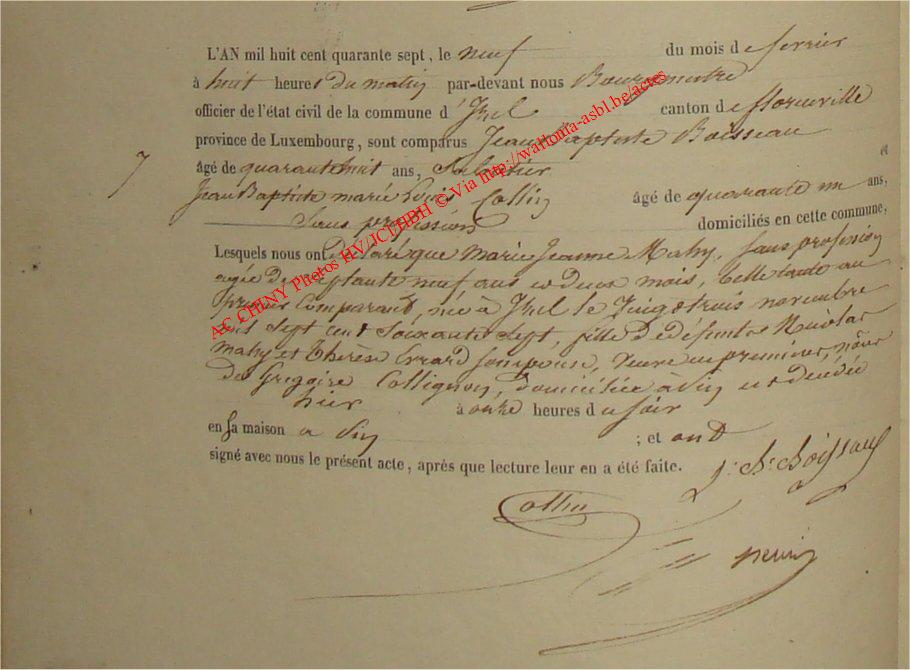 L'AN mil huit cent quarante sept, le neuf du mois de fevrier
à huit heures du matin par-devant nous Bourgmestre
officier de l'état civil de la commune d'Izel canton de florenville
province de Luxembourg, sont comparus Jean Baptiste Boisseau
7 âgé de quarante huit ans, et
Jean Baptiste marie Louis Collin âgé de quarante un ans,
Sans profession domiciliés en cette commune,
Lesquels nous ont déclaré que Marie Jeanne Mahy, sans profession
agée de septante neuf ans et deux mois, belle tante au
premier Comparant, née à Izel le vingt trois novembre
mil sept cent soixante sept, fille de défunts Nicolas
mahy et Thérèse Errard son épouse, veuve en premières nôces
de Grégoire Collignon, domiciliée à Pin est décédée
hier à onze heures du soir
en sa maison a Pin ; et ont
signé avec nous le présent acte, après que lecture leur en a été faite.
J. Bte Boisseau
Collin
AC CHINY Photos HV/JCL/HBH © Via http://wallonia-asbl.be/actes